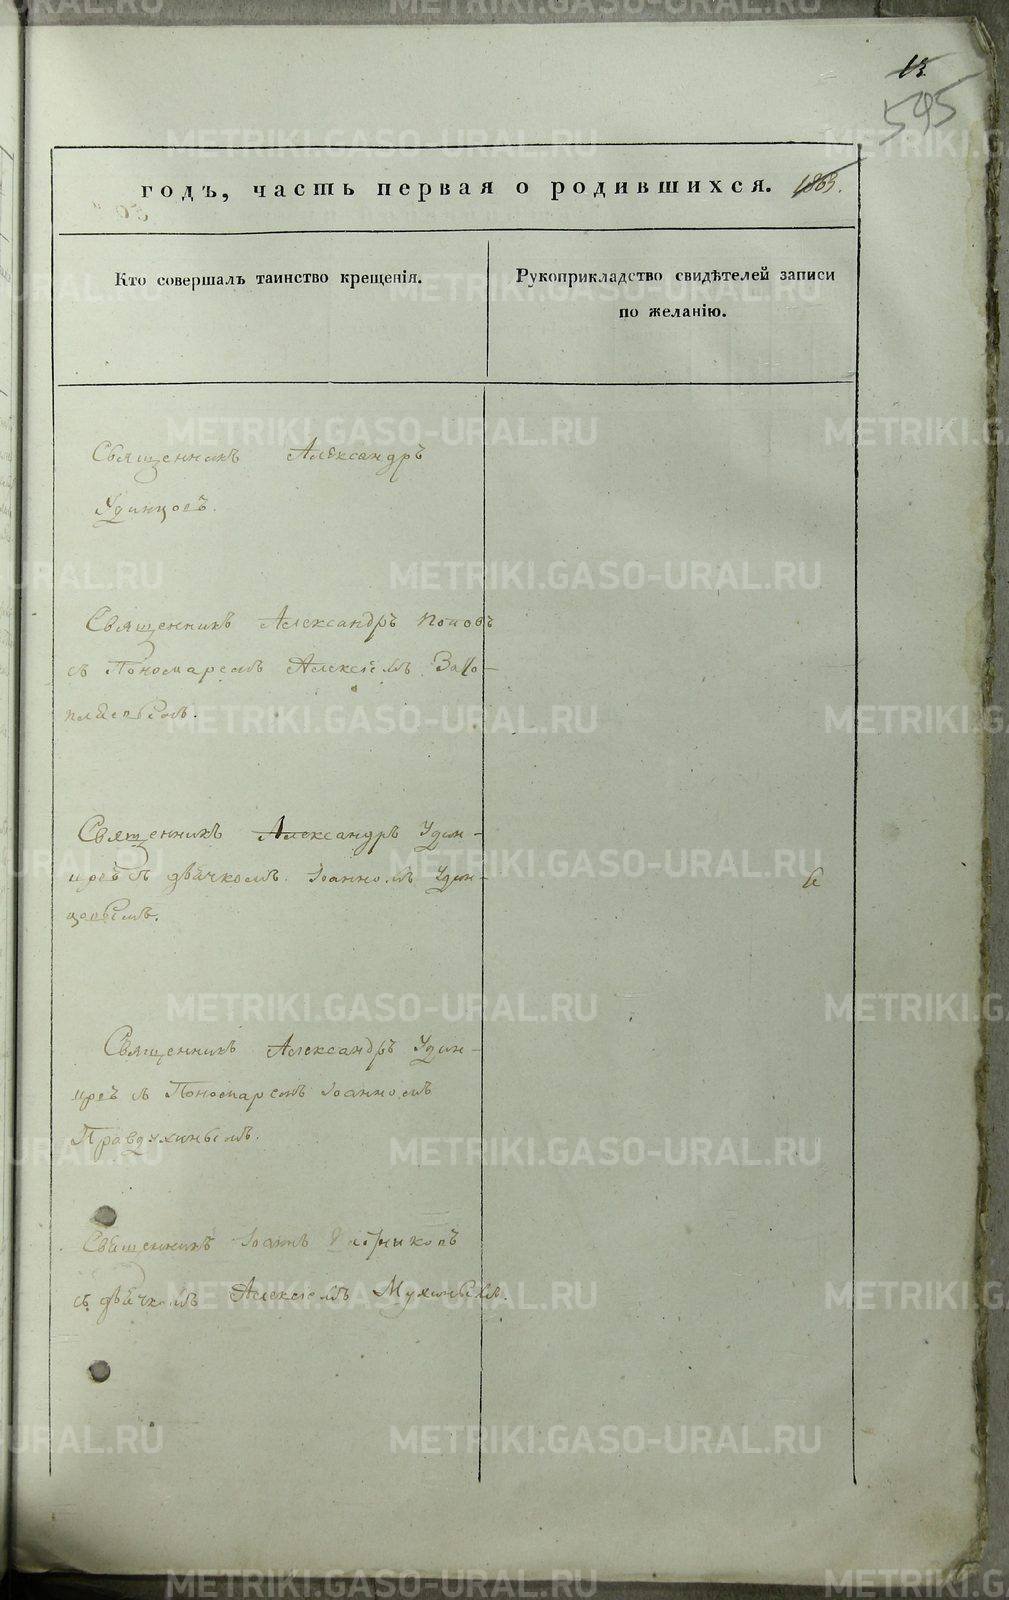 13
595
годъ, часть первая о родившихся. 1863.
Кто совершалъ таинство крещенія.
Рукоприкладство свидѣтелей записи
по желанію.
Священникъ Александръ
Удинцовъ.
Священникъ Александръ Поповъ
съ Пономаремъ Алексіемъ
Священникъ Александръ Удин-
цовъ съ дьячкомъ Іоанномъ Удин-
цовымъ.
Священникъ Александръ Удин-
цовъ съ Пономаремъ Іоанномъ
Правдухинымъ.
Священникъ Іоаннъ
съ дьячкомъ Алексіемъ Мухинымъ.
METRIKI.GASO-URAL.RU